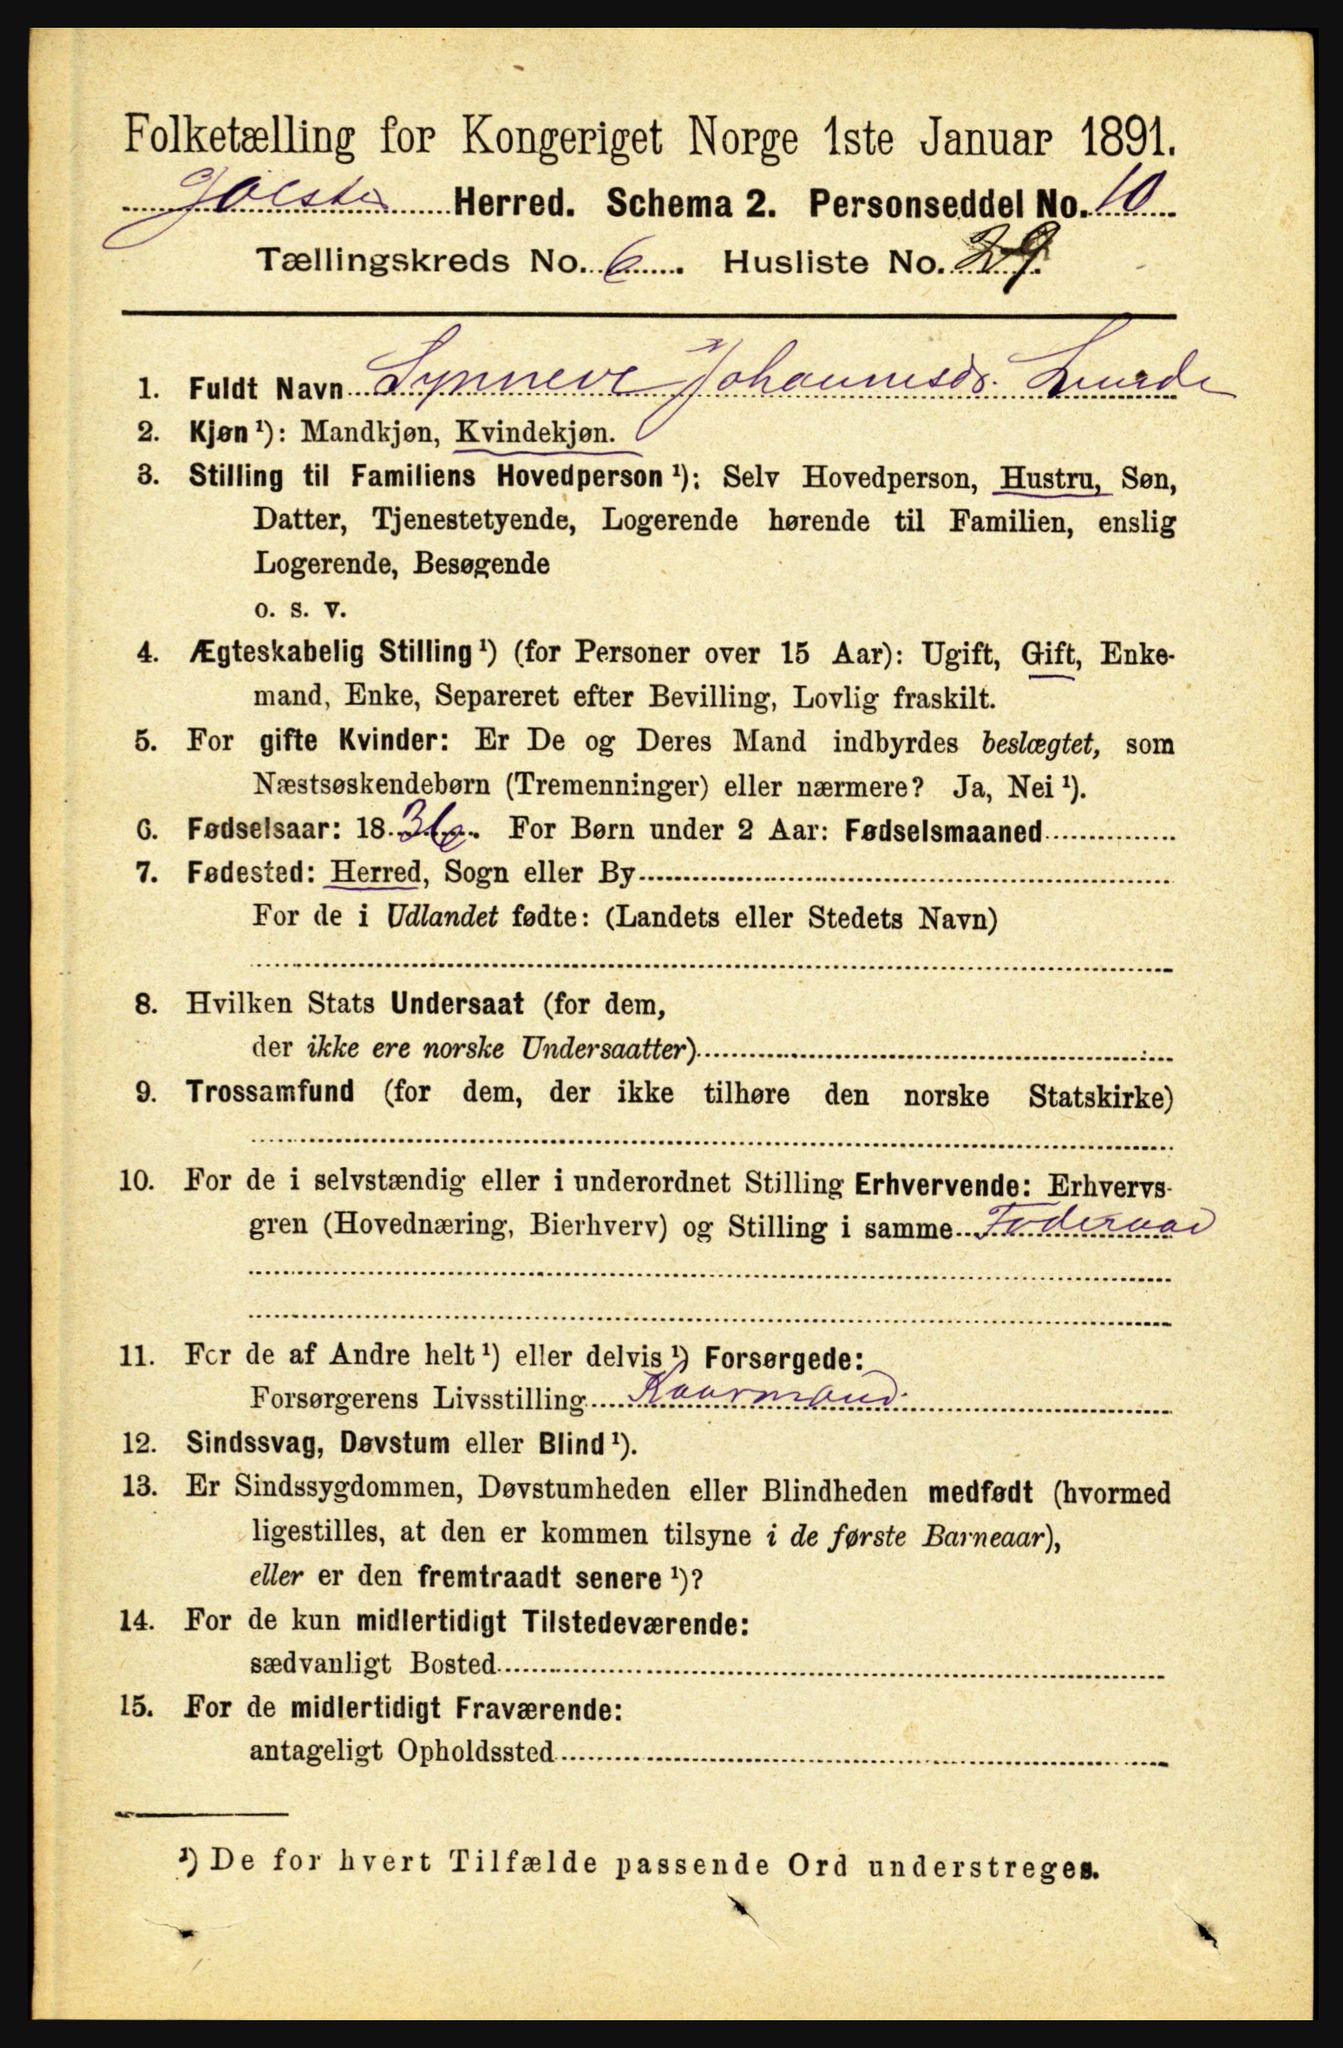 Folketælling for Kongeriget Norge 1ste Januar 1891.
Jølster Herred. Schema 2. Personseddel No. 10
Tællingskreds No. 6. Husliste No. 29.
1. Fuldt Navn Synneve Johannesdr. Lunde
2. Kjøn¹): Mandkjøn, Kvindekjøn.
3. Stilling til Familiens Hovedperson¹): Selv Hovedperson, Hustru, Søn,
Datter, Tjenestetyende, Logerende hørende til Familien, enslig
Logerende, Besøgende
o. s. v.
4. Ægteskabelig Stilling¹) (for Personer over 15 Aar): Ugift, Gift, Enke-
mand, Enke, Separeret efter Bevilling, Lovlig fraskilt.
5. For gifte Kvinder: Er De og Deres Mand indbyrdes beslægtet, som
Næstsøskendebørn (Tremenninger) eller nærmere? Ja, Nei¹).
6. Fødselsaar: 1836. For Børn under 2 Aar: Fødselsmaaned
7. Fødested: Herred, Sogn eller By
For de i Udlandet fødte: (Landets eller Stedets Navn)
8. Hvilken Stats Undersaat (for dem,
der ikke ere norske Undersaatter)
9. Trossamfund (for dem, der ikke tilhøre den norske Statskirke)
10. For de i selvstændig eller i underordnet Stilling Erhvervende: Erhvervs-
gren (Hovednæring, Bierhverv) og Stilling i samme Føderaad
11. For de af Andre helt¹) eller delvis¹) Forsørgede:
Forsørgerens Livsstilling Kaarmand.
12. Sindssvag, Døvstum eller Blind¹).
13. Er Sindssygdommen, Døvstumheden eller Blindheden medfødt (hvormed
ligestilles, at den er kommen tilsyne i de første Barneaar),
eller er den fremtraadt senere¹)?
14. For de kun midlertidigt Tilstedeværende:
sædvanligt Bosted
15. For de midlertidigt Fraværende:
antageligt Opholdssted
¹) De for hvert Tilfælde passende Ord understreges.